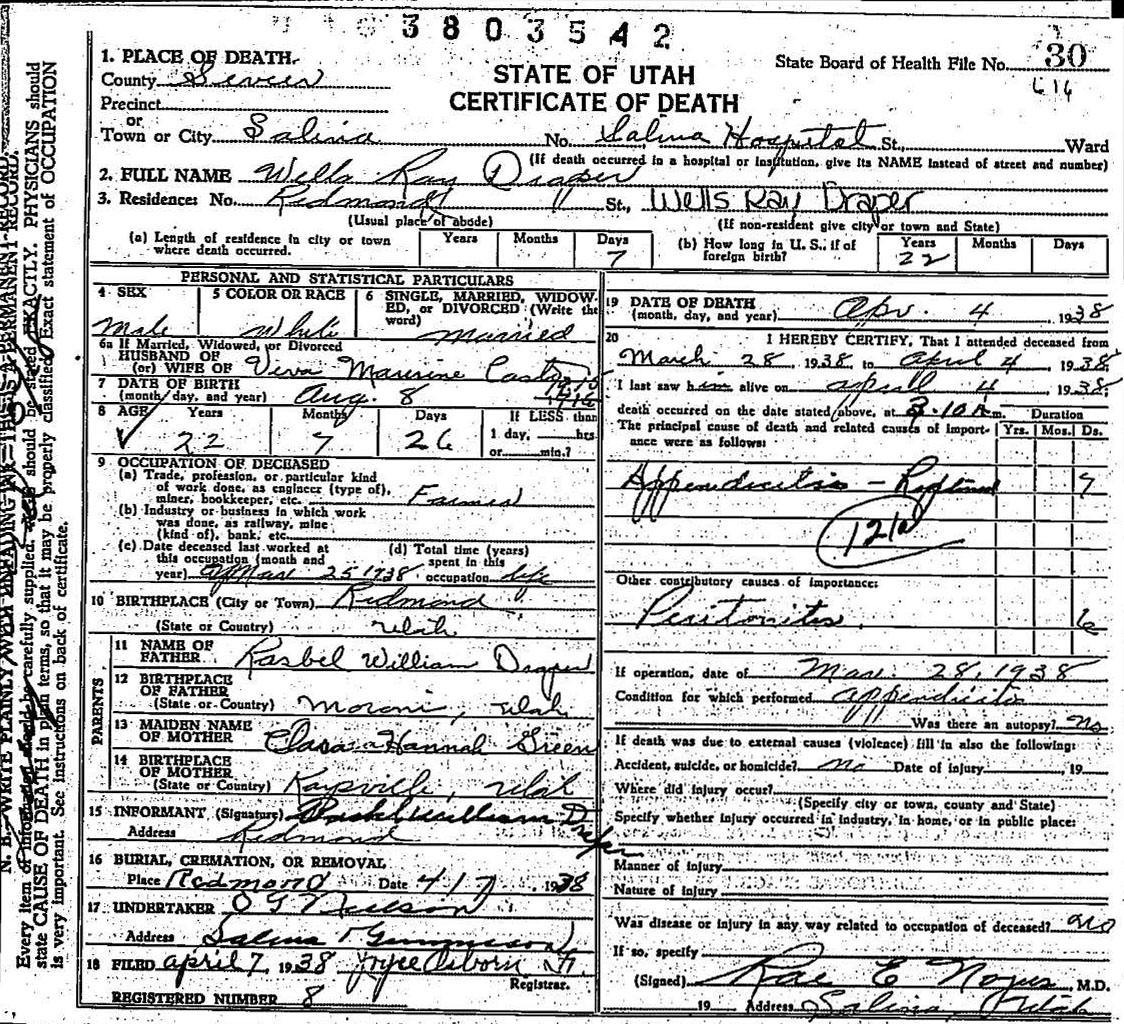 3803542
1. PLACE OF DEATH.
County Sevier
Precinct
or
Town or City Salina No. Salina Hospital St., Ward
STATE OF UTAH
CERTIFICATE OF DEATH
State Board of Health File No. 30
(If death occurred in a hospital or institution, give its NAME instead of street and number)
2. FULL NAME Wells Ray Draper
3. Residence: No. Redmond " St., Wells Ray Draper
(Usual place of abode) (If non-resident give city or town and State)
(a) Length of residence in city or town where death occurred. Years Months Days 7
(b) How long in U. S., if of foreign birth? Years 22 Months Days
PERSONAL AND STATISTICAL PARTICULARS
4 SEX Male
5 COLOR OR RACE White
6 SINGLE, MARRIED, WIDOWED, OR DIVORCED (Write the word) Married
6a If Married, Widowed, or Divorced
HUSBAND OF
(or) WIFE OF Veva
7 DATE OF BIRTH
(month, day, and year) Aug. 8 1915
8 AGE Years 22 Months 7 Days 26 If LESS than
1 day, hrs.
or min.?
9 OCCUPATION OF DECEASED
(a) Trade, profession, or particular kind
of work done, as engineer (type of),
miner, bookkeeper, etc. Farmer
(b) Industry or business in which work
was done, as railway, mine
(kind of), bank, etc.
(c) Date deceased last worked at
this occupation (month and
year) Mar 25 1938
(d) Total time (years)
spent in this
occupation life
10 BIRTHPLACE (City or Town) Redmond
(State or Country) Utah
PARENTS
11 NAME OF
FATHER Rasbel William Draper
12 BIRTHPLACE
OF FATHER
(State or Country) Moroni, Utah
13 MAIDEN NAME
OF MOTHER Clara Hannah Green
14 BIRTHPLACE
OF MOTHER
(State or Country) Kaysville, Utah
15 INFORMANT (Signature) Rasbel William Draper
Address Redmond
16 BURIAL, CREMATION, OR REMOVAL
Place Redmond Date 4/7 1938
17 UNDERTAKER O G Neilson
Address Salina & Gunnison
18 FILED April 7, 1938 Joyce Osborn
Registrar.
REGISTERED NUMBER 8
19 DATE OF DEATH
(month, day, and year) Apr. 4 1938
20 I HEREBY CERTIFY, That I attended deceased from
March 28, 1938, to April 4, 1938,
I last saw him alive on April 4, 1938,
death occurred on the date stated above, at 3.10 A m.
The principal cause of death and related causes of importance were as follows:
Duration
Yrs. Mos. Ds.
Appendicitis - Ruptured 7
121a
Other contributory causes of importance:
Peritonitis 6
If operation, date of Mar. 28, 1938
Condition for which performed appendicitis
Was there an autopsy? No
If death was due to external causes (violence) fill in also the following:
Accident, suicide, or homicide? no Date of injury , 19
Where did injury occur?
(Specify city or town, county and State)
Specify whether injury occurred in industry, in home, or in public place:
Manner of injury
Nature of injury
Was disease or injury in any way related to occupation of deceased? no
If so, specify
(Signed) Rae E Noyes, M.D.
19 Address Salina, Utah
N. B.—WRITE PLAINLY WITH UNFADING INK—THIS IS A PERMANENT RECORD.
Every item of information should be carefully supplied. AGE should be stated EXACTLY. PHYSICIANS should
state CAUSE OF DEATH in plain terms, so that it may be properly classified. Exact statement of OCCUPATION
is very important. See instructions on back of certificate.